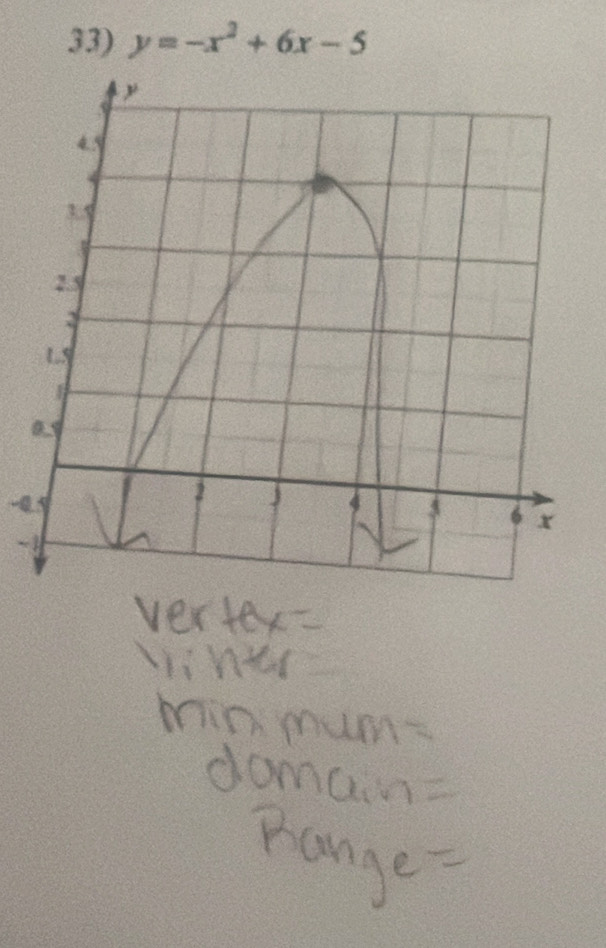 33) y = -x² + 6x - 5
y
4.5
4
3.5
3
2.5
2
1.5
1
0.5
2
3
4
5
6
x
-0.5
-1
vertex=
minimum=
domain=
Range=